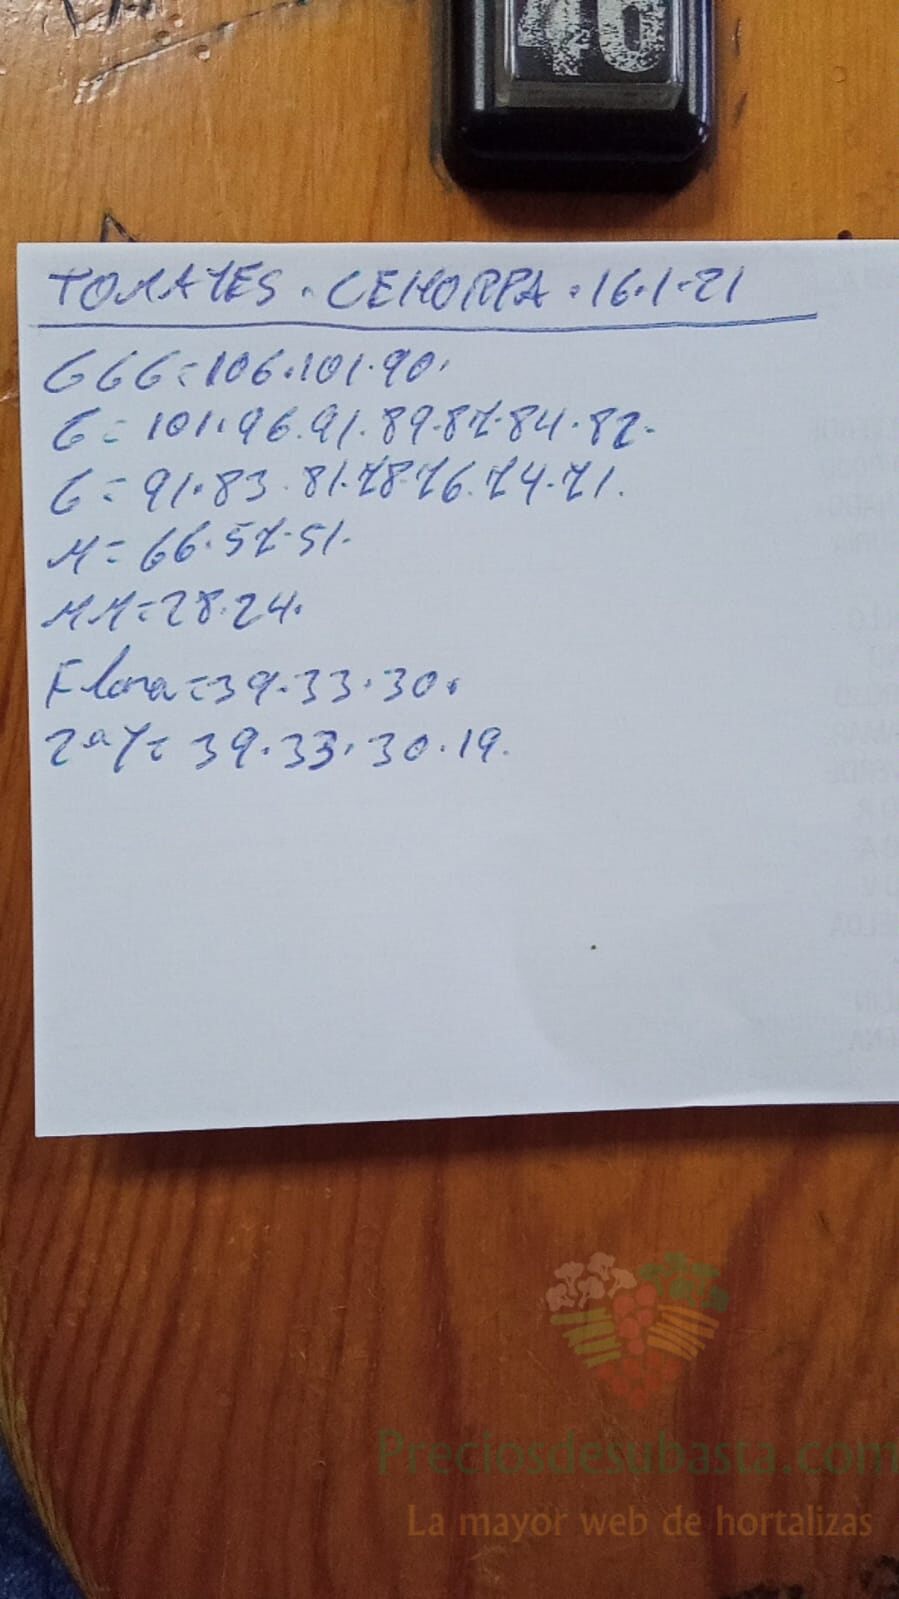 46
TOMATES · CEHORPA · 16·1·21
GGG = 106·101·90·
G = 101·96·91·89·87·84·82·
G = 91·83·81·78·76·74·71·
M = 66·57·51·
MM = 28·24·
Flora = 39·33·30·
2ªY = 39·33·30·19·
Preciosdesubasta.com
La mayor web de hortalizas